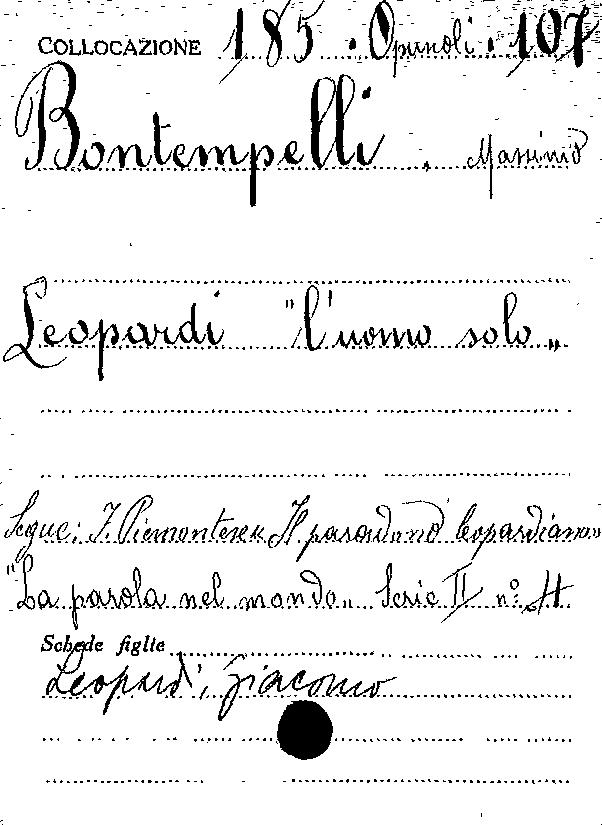 COLLOCAZIONE 185 . Opuscoli . 107
Bontempelli . Massimo
Leopardi "l'uomo solo„
Segue: F. Piemontese Il paradiso leopardiano
"La parola nel mondo„ Serie II nº 4
Schede figlie
Leopardi, Giacomo